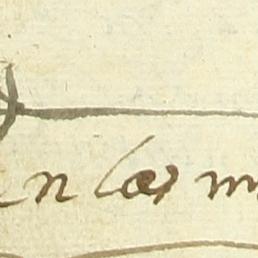 en las m